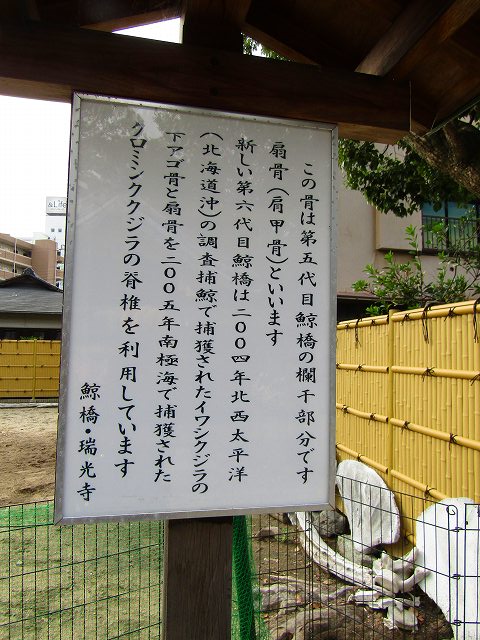 この骨は第五代目鯨橋の欄干部分です
扇骨(肩甲骨)といいます
新しい第六代目鯨橋は二〇〇四年北西太平洋
(北海道沖)の調査捕鯨で捕獲されたイワシクジラの
下アゴ骨と扇骨を二〇〇五年南極海で捕獲された
クロミンククジラの脊椎を利用しています
鯨橋・瑞光寺
&Life